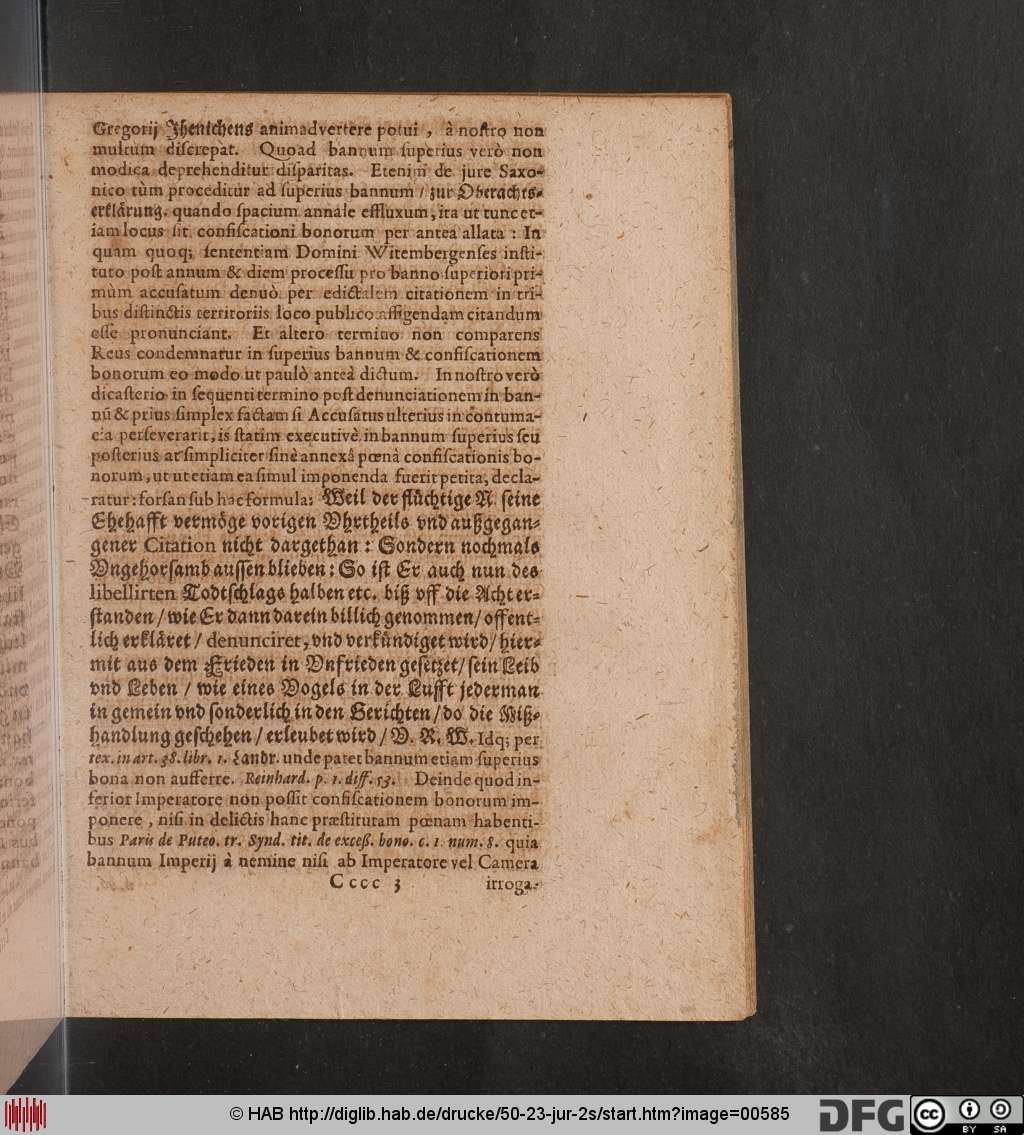 Gregorij Jhenichens animadvertere potui, à nostro non
multum discrepat. Quoad bannum superius verò non
modica deprehenditur disparitas. Etenim de jure Saxo-
nico tùm proceditur ad superius bannum / zur Oberachts-
erklärung, quando spacium annale effluxum, ita ut tunc et-
iam locus sit confiscationi bonorum per antea allata: In
quam quoq; sententiam Domini Witembergenses insti-
tuto post annum & diem processu pro banno superiori pri-
mùm accusatum denuò per edictalem citationem in tri-
bus distinctis territoriis loco publico affigendam citandum
esse pronunciant. Et altero termino non comparens
Reus condemnatur in superius bannum & confiscationem
bonorum eo modo ut paulò anteà dictum. In nostro verò
dicasterio in sequenti termino post denunciationem in ban-
nū & prius simplex factam si Accusatus ulterius in contuma-
cia perseverarit, is statim executivè in bannum superius seu
posterius at simpliciter sinè annexâ pœnâ confiscationis bo-
norum, ut ut etiam ea simul imponenda fuerit petita, decla-
ratur: forsan sub hac formula: Weil der flüchtige N. seine
Ehehafft vermöge vorigen Vhrtheils vnd außgegan-
gener Citation nicht dargethan: Sondern nochmals
Vngehorsamb aussen blieben: So ist Er auch nun des
libellirten Todtschlags halben etc. biß vff die Acht er-
standen / wie Er dann darein billich genommen / offent-
lich erkläret / denunciret, vnd verkündiget wird / hier-
mit aus dem Frieden in Vnfrieden gesetzet / sein Leib
vnd Leben / wie eines Vogels in der Lufft jederman
in gemein vnd sonderlich in den Gerichten / do die Miß-
handlung geschehen / erleubet wird / V. R. W. Idq; per
tex. in art. 38. libr. 1. Landr. unde patet bannum etiam superius
bona non aufferre. Reinhard. p. 1. diff. 53. Deinde quod in-
ferior Imperatore non possit confiscationem bonorum im-
ponere, nisi in delictis hanc præstitutam pœnam habenti-
bus Paris de Puteo. tr. Synd. tit. de exceß. bono. c. 1. num. 8. quia
bannum Imperij à nemine nisi ab Imperatore vel Camera
Cccc 3 irroga-
© HAB http://diglib.hab.de/drucke/50-23-jur-2s/start.htm?image=00585
DFG
cc BY SA